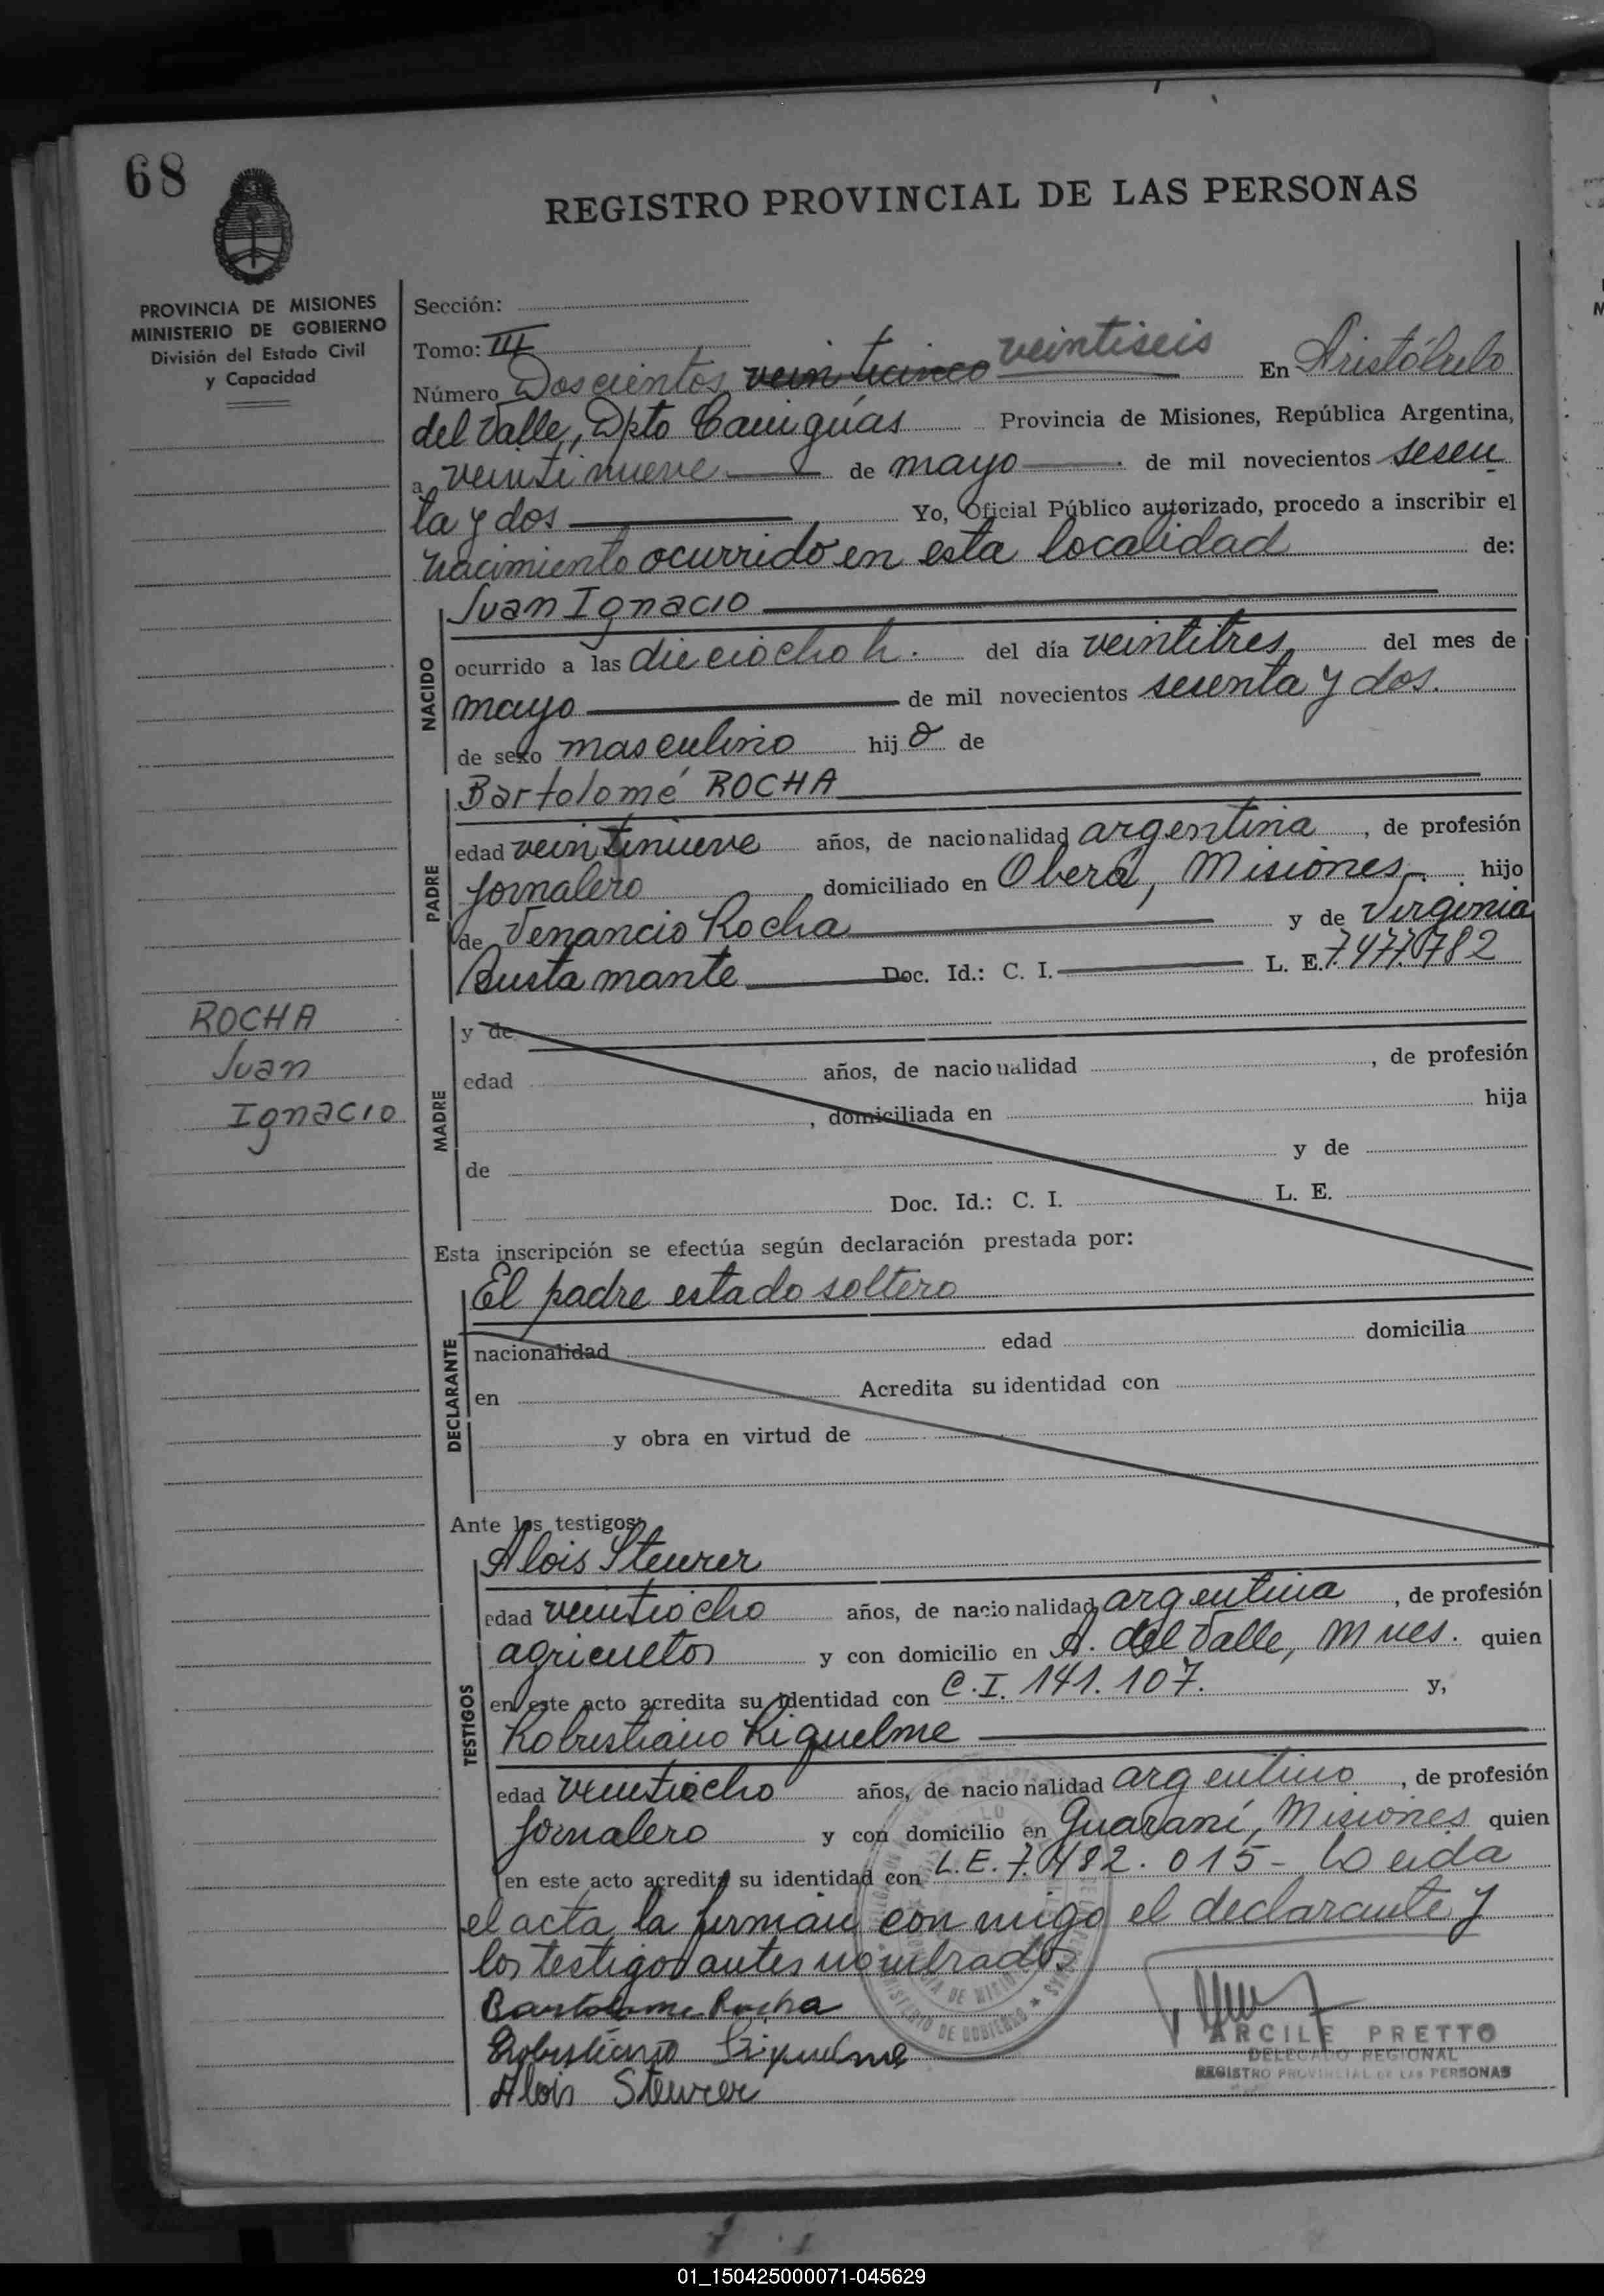 68
REGISTRO PROVINCIAL DE LAS PERSONAS
PROVINCIA DE MISIONES
MINISTERIO DE GOBIERNO
División del Estado Civil
y Capacidad
Sección:
Tomo: III
Número Doscientos veinticinco veintiseis En Aristóbulo
del Valle, Dpto Cainguás Provincia de Misiones, República Argentina,
a veintinueve de mayo de mil novecientos sesen
ta y dos Yo, Oficial Público autorizado, procedo a inscribir el
nacimiento ocurrido en esta localidad de:
NACIDO
Juan Ignacio
ocurrido a las dieciocho h. del día veintitres del mes de
mayo de mil novecientos sesenta y dos.
de sexo masculino hijo de
PADRE
Bartolomé ROCHA
edad veintinueve años, de nacionalidad argentina, de profesión
jornalero domiciliado en Oberá, Misiones. hijo
de Venancio Rocha y de Virginia
Bustamante Doc. Id.: C. I. L. E. 7.477.782
ROCHA
Juan
Ignacio
MADRE
y de
edad años, de nacionalidad , de profesión
, domiciliada en hija
de y de
Doc. Id.: C. I. L. E.
Esta inscripción se efectúa según declaración prestada por:
DECLARANTE
El padre estado soltero
nacionalidad edad domicilia
en Acredita su identidad con
y obra en virtud de
Ante los testigos:
TESTIGOS
Alois Steurer
edad veintiocho años, de nacionalidad argentina, de profesión
agricultor y con domicilio en A. del Valle, Mnes. quien
en este acto acredita su identidad con C.I. 141.107. y,
Robustiano Riquelme
edad veintiocho años, de nacionalidad argentino, de profesión
jornalero y con domicilio en Guaraní, Misiones quien
en este acto acredita su identidad con L.E. 7.482.015- Leida
el acta la firman con migo el declarante y
los testigos antes nombrados
Bartolome Rocha
Robustiano Riquelme
Alois Steurer
MINISTERIO DE GOBIERNO
ARCILE PRETTO
DELEGADO REGIONAL
REGISTRO PROVINCIAL DE LAS PERSONAS
01_150425000071-045629